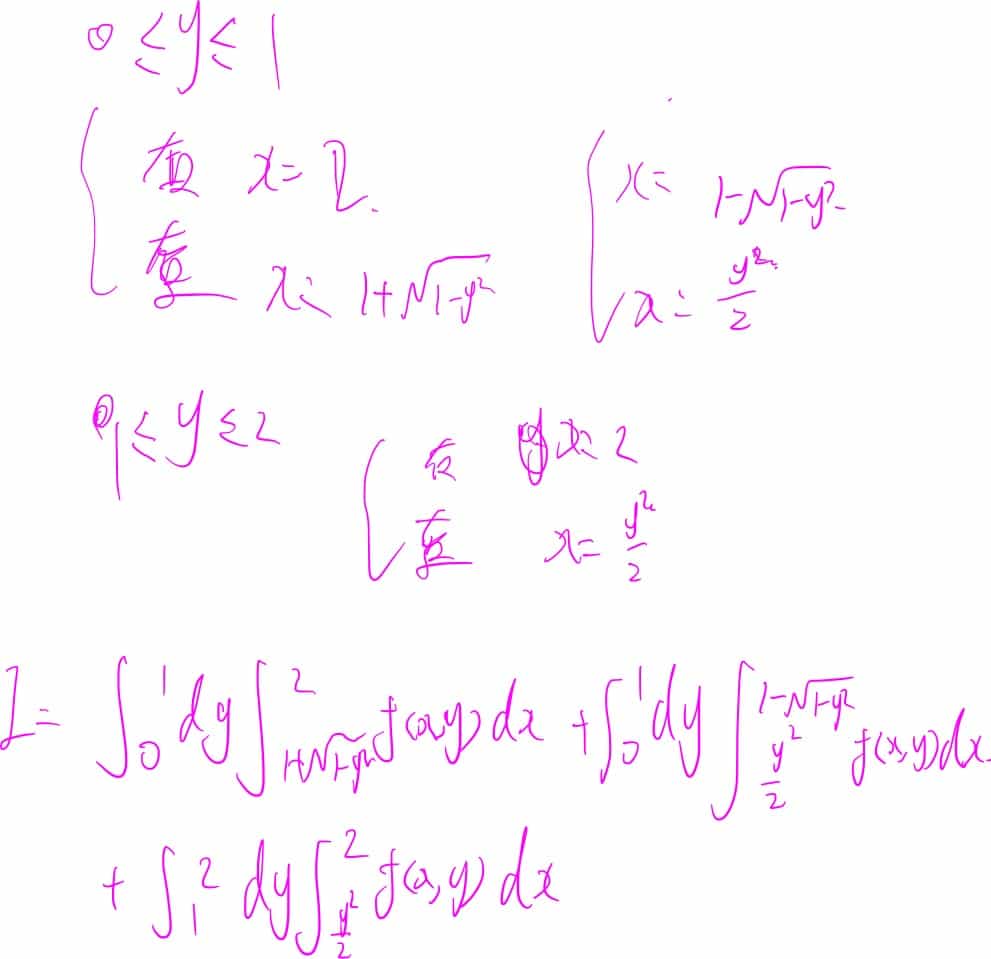 0 ≤ y ≤ 1
x = 2. x = 1-√(1-y²)
x = 1+√(1-y²) x = y²/2
1 ≤ y ≤ 2 右 x = 2
x = y²/2
I = ∫₀¹ dy ∫_{1+√(1-y²)}^{2} f(x,y) dx + ∫₀¹ dy ∫_{y²/2}^{1-√(1-y²)} f(x,y) dx.
+ ∫₁² dy ∫_{y²/2}^{2} f(x,y) dx